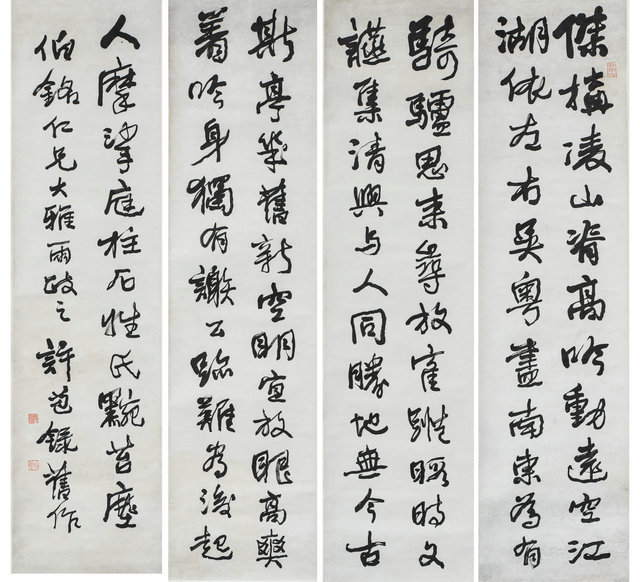 傑構凌山脊高吟動遠空江
湖依左右吳粵盡南東為有
騎驢思来尋放隺蹤暇時文
讌集清興与人同勝地無今古
斯亭幾舊新空明宜放眼高爽
著吟身獨有公跡難為後起
人摩挲庭柱石姓氏黦苔塵
伯銘仁兄大雅兩政之 許錄舊作